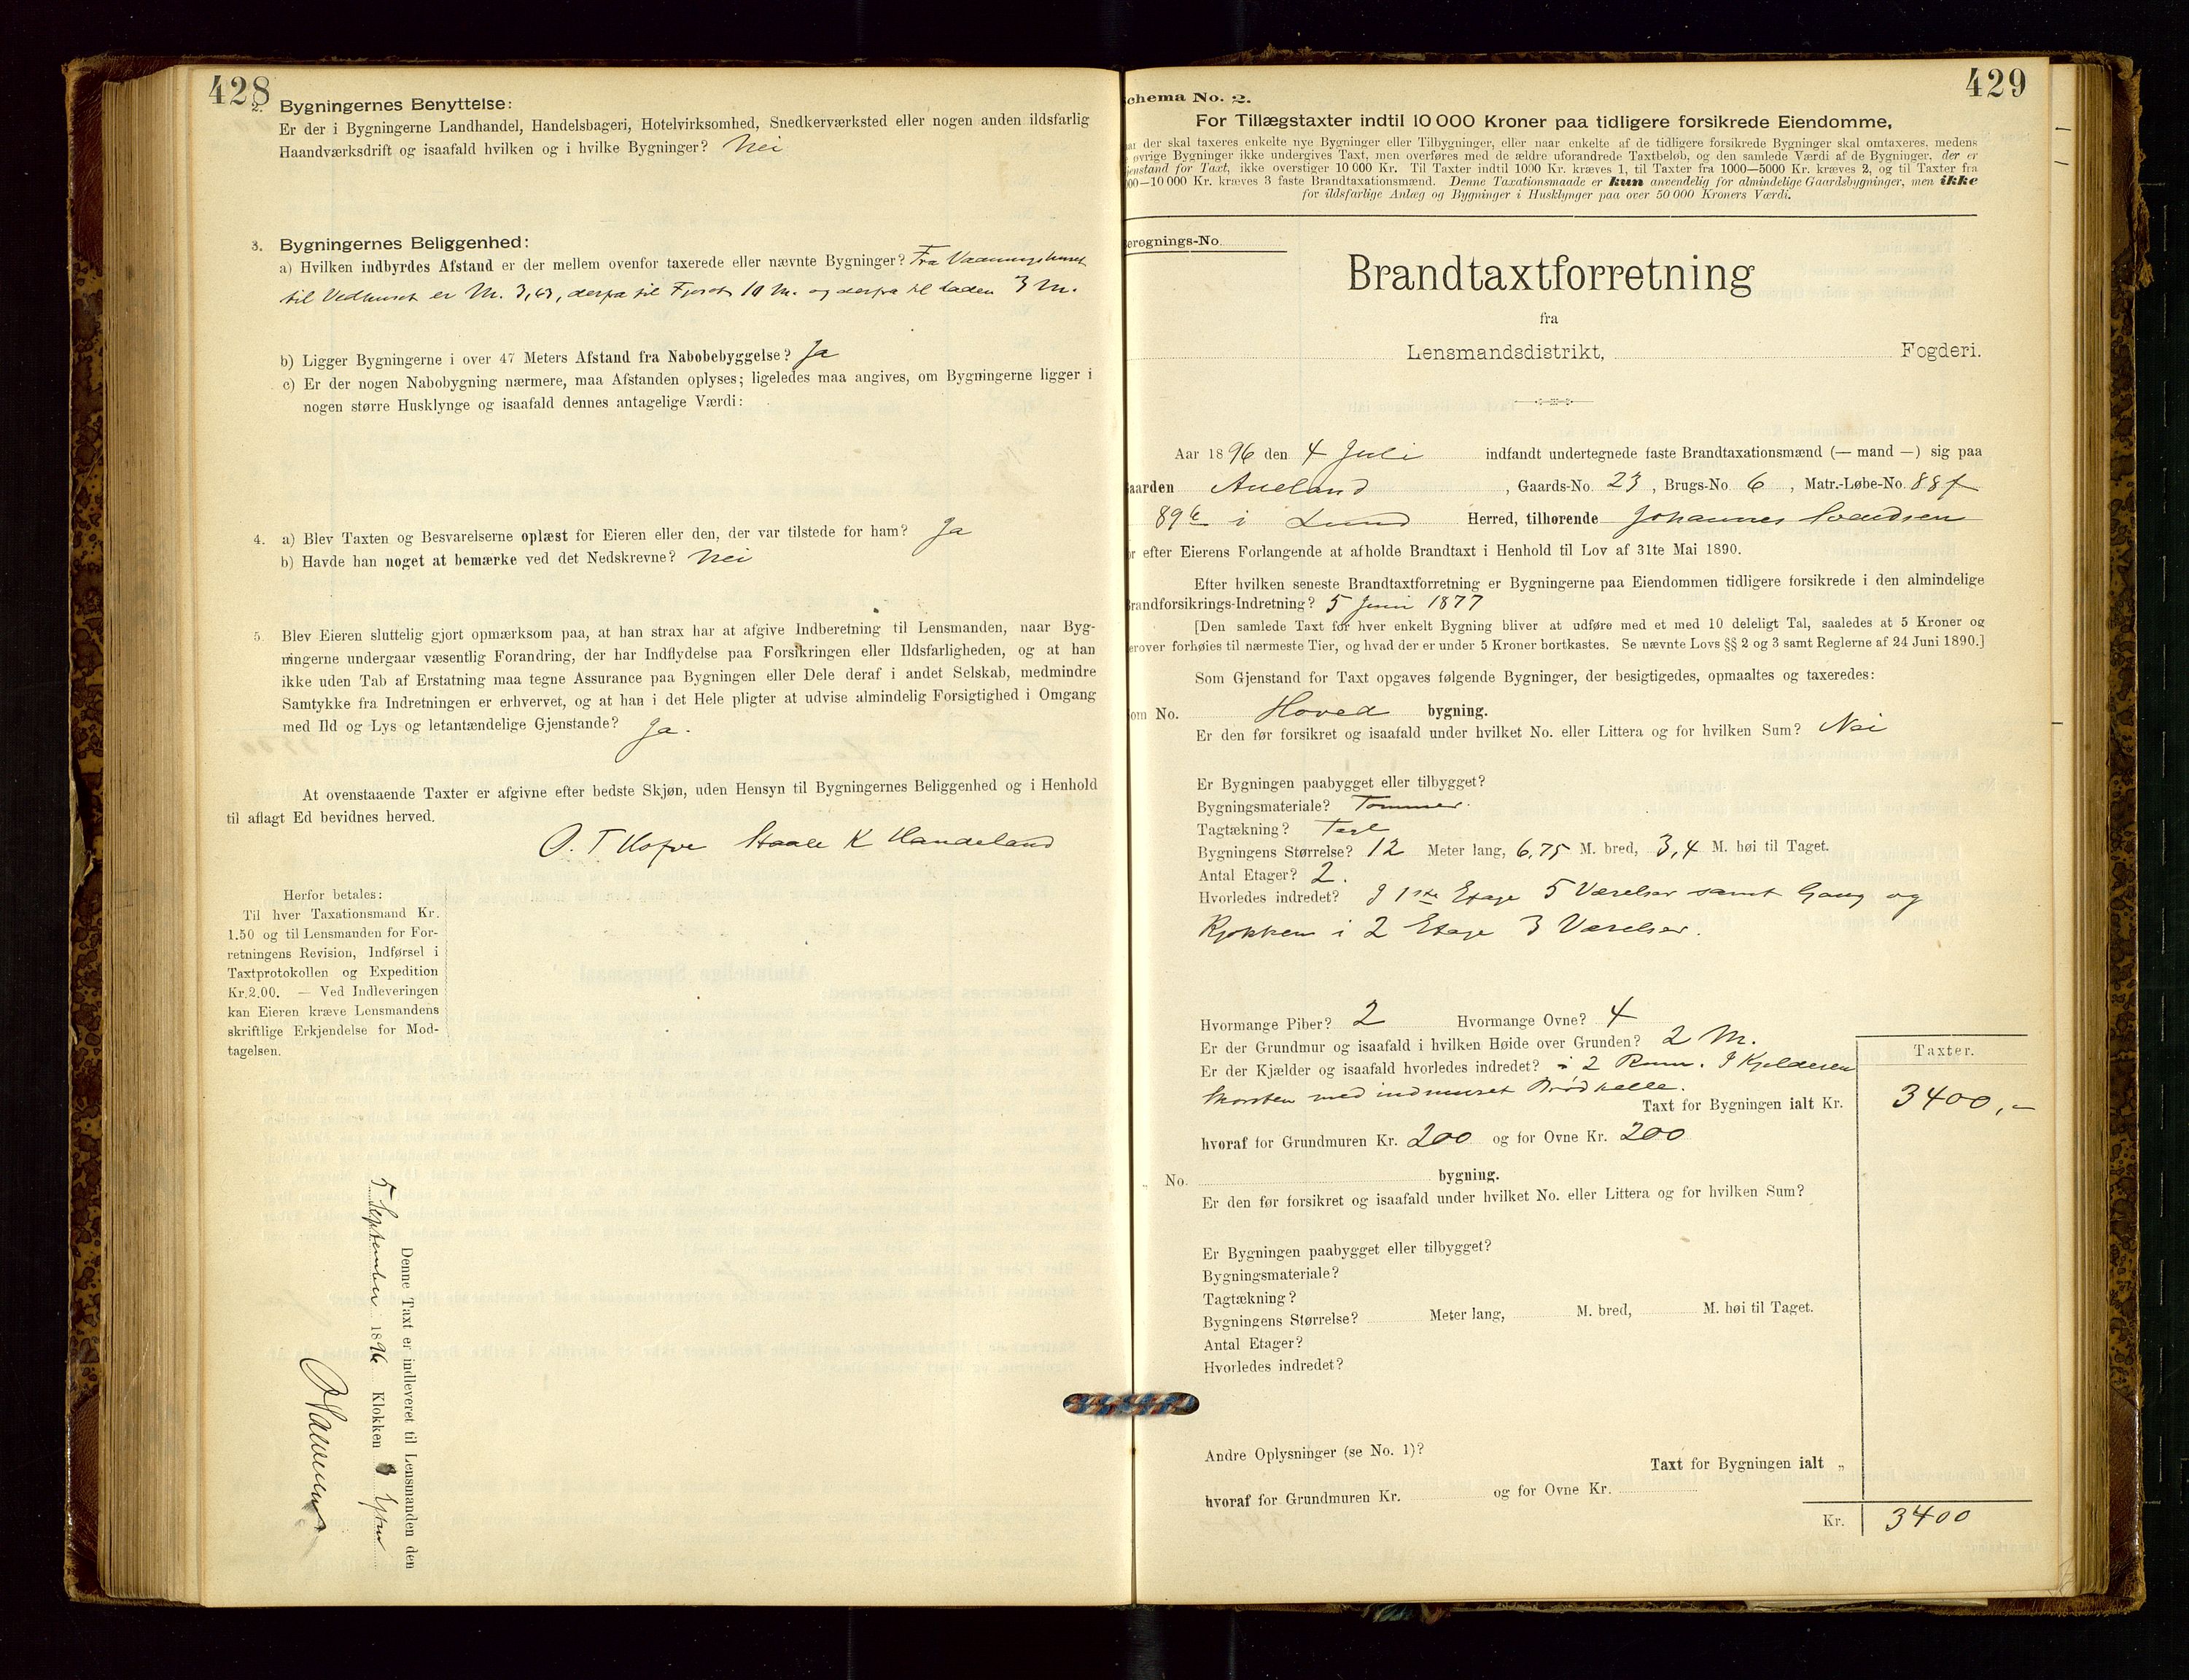 428
2. Bygningernes Benyttelse:
Er der i Bygningerne Landhandel, Handelsbageri, Hotelvirksomhed, Snedkerværksted eller nogen anden ildsfarlig
Haandværksdrift og isaafald hvilken og i hvilke Bygninger? Nei
3. Bygningernes Beliggenhed:
a) Hvilken indbyrdes Afstand er der mellem ovenfor taxerede eller nævnte Bygninger? Fra Vaaningshuset
til Vedhuset er M. 3,63, derfra til Fjøset 10 M. og derfra til Laden 3 M.
b) Ligger Bygningerne i over 47 Meters Afstand fra Nabobebyggelse? Ja
c) Er der nogen Nabobygning nærmere, maa Afstanden oplyses; ligeledes maa angives, om Bygningerne ligger i
nogen større Husklynge og isaafald dennes antagelige Værdi:
4. a) Blev Taxten og Besvarelserne oplæst for Eieren eller den, der var tilstede for ham? Ja
b) Havde han noget at bemærke ved det Nedskrevne? Nei
5. Blev Eieren sluttelig gjort opmærksom paa, at han strax har at afgive Indberetning til Lensmanden, naar Byg-
ningerne undergaar væsentlig Forandring, der har Indflydelse paa Forsikringen eller Ildsfarligheden, og at han
ikke uden Tab af Erstatning maa tegne Assurance paa Bygningen eller Dele deraf i andet Selskab, medmindre
Samtykke fra Indretningen er erhvervet, og at han i det Hele pligter at udvise almindelig Forsigtighed i Omgang
med Ild og Lys og letantændelige Gjenstande? Ja.
At ovenstaaende Taxter er afgivne efter bedste Skjøn, uden Hensyn til Bygningernes Beliggenhed og i Henhold
til aflagt Ed bevidnes herved.
O. T Hofve Staale K Handeland
Herfor betales:
Til hver Taxationsmand Kr.
1.50 og til Lensmanden for For-
retningens Revision, Indførsel i
Taxtprotokollen og Expedition
Kr.2.00. — Ved Indleveringen
kan Eieren kræve Lensmandens
skriftlige Erkjendelse for Mod-
tagelsen.
Denne Taxt er indleveret til Lensmanden den
5 September 1896 Klokken 3 Efter
429
Schema No. 2.
For Tillægstaxter indtil 10 000 Kroner paa tidligere forsikrede Eiendomme,
der skal taxeres enkelte nye Bygninger eller Tilbygninger, eller naar enkelte af de tidligere forsikrede Bygninger skal omtaxeres, medens
øvrige Bygninger ikke undergives Taxt, men overføres med de ældre uforandrede Taxtbeløb, og den samlede Værdi af de Bygninger, der er
jenstand for Taxt, ikke overstiger 10 000 Kr. Til Taxter indtil 1000 Kr. kræves 1, til Taxter fra 1000—5000 Kr. kræves 2, og til Taxter fra
00—10 000 Kr. kræves 3 faste Brandtaxationsmænd. Denne Taxationsmaade er kun anvendelig for almindelige Gaardsbygninger, men ikke
for ildsfarlige Anlæg og Bygninger i Husklynger paa over 50 000 Kroners Værdi.
eregnings-No.
Brandtaxtforretning
fra
Lensmandsdistrikt, Fogderi.
Aar 1896 den 4 Juli indfandt undertegnede faste Brandtaxationsmænd (— mand —) sig paa
aarden Aueland, Gaards-No. 23, Brugs-No 6, Matr.-Løbe-No. 88f
89b i Lund Herred, tilhørende Johannes Svendsen
r efter Eierens Forlangende at afholde Brandtaxt i Henhold til Lov af 31te Mai 1890.
Efter hvilken seneste Brandtaxtforretning er Bygningerne paa Eiendommen tidligere forsikrede i den almindelige
randforsikrings-Indretning? 5 Juni 1877
[Den samlede Taxt for hver enkelt Bygning bliver at udføre med et med 10 deleligt Tal, saaledes at 5 Kroner og
erover forhøies til nærmeste Tier, og hvad der er under 5 Kroner bortkastes. Se nævnte Lovs §§ 2 og 3 samt Reglerne af 24 Juni 1890.]
Som Gjenstand for Taxt opgaves følgende Bygninger, der besigtigedes, opmaaltes og taxeredes:
om No. Hoved bygning.
Er den før forsikret og isaafald under hvilket No. eller Littera og for hvilken Sum? Nei
Er Bygningen paabygget eller tilbygget?
Bygningsmateriale? Tømmer.
Tagtækning? Tegl
Bygningens Størrelse? 12 Meter lang, 6,75 M. bred, 3,4 M. høi til Taget.
Antal Etager? 2.
Hvorledes indredet? I 1ste Etage 5 Værelser samt Gang og
Kjøkken i 2 Etage 3 Værelser.
Hvormange Piber? 2 Hvormange Ovne? 4
Er der Grundmur og isaafald i hvilken Høide over Grunden? 2 M.
Er der Kjælder og isaafald hvorledes indredet? i 2 Rum. I Kjelderen
Skorsten med indmuret Brødhelle.
Taxter.
Taxt for Bygningen ialt Kr. 3400,-
hvoraf for Grundmuren Kr. 200 og for Ovne Kr. 200
„ No. bygning.
Er den før forsikret og isaafald under hvilket No. eller Littera og for hvilken Sum?
Er Bygningen paabygget eller tilbygget?
Bygningsmateriale?
Tagtækning?
Bygningens Størrelse? Meter lang, M. bred, M. høi til Taget.
Antal Etager?
Hvorledes indredet?
Andre Oplysninger (se No. 1)?
Taxt for Bygningen ialt „
hvoraf for Grundmuren Kr. og for Ovne Kr.
Kr. 3400